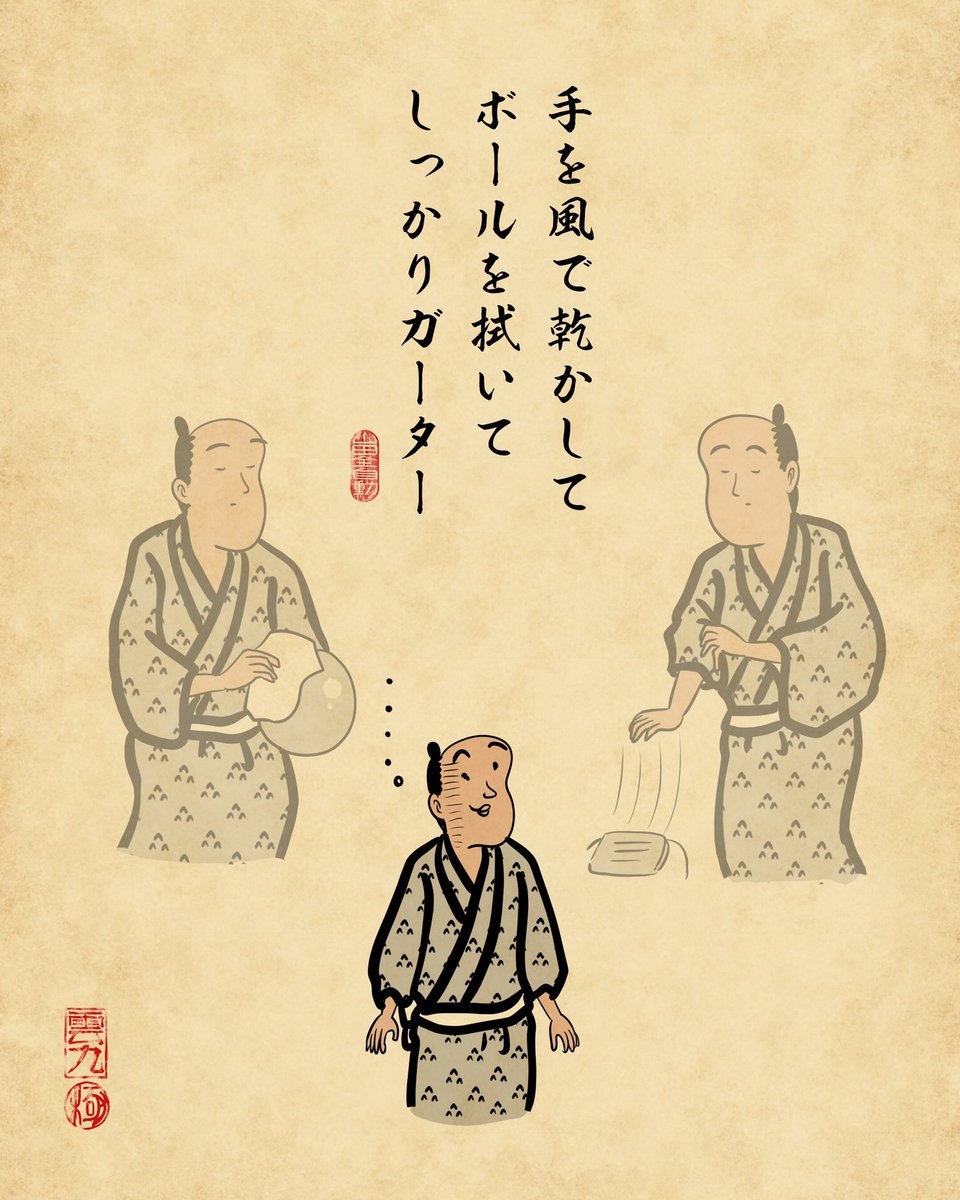 手を風で乾かして
ボールを拭いて
しっかりガーター